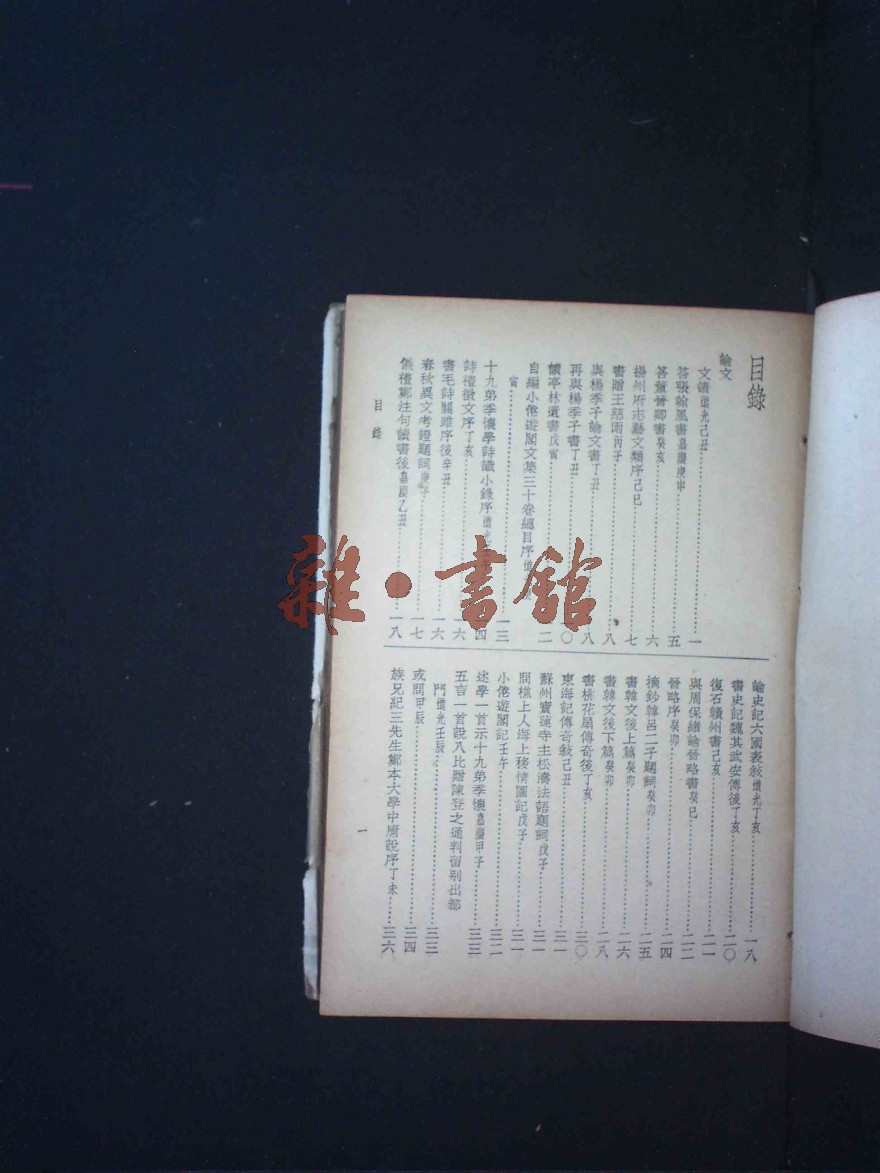 目錄
論文
文譜道光己丑……一
答張翰風書嘉慶庚申……五
答董晉卿書癸亥……六
揚州府志藝文類序己巳……七
書贈王慈雨丙子……八
與楊季子論文書丁丑……八
再與楊季子書丁丑……一〇
讀亭林遺書戊寅……二
自編小倦遊閣文集三十卷總目序道
寅……一三
十九弟季懷學詩識小錄序道光……四
詩禮徵文序丁亥……六
書毛詩關雎序後辛丑……一六
春秋異文考證題詞庚子……一七
儀禮鄭注句讀書後嘉慶乙丑……一八
論史記六國表敘道光丁亥……一八
書史記魏其武安傳後丁亥……二〇
復石贛州書己亥……二一
與周保緒論晉略書癸巳……二二
晉略序癸卯……二四
摘鈔韓呂二子題詞癸卯……二五
書韓文後上篇癸卯……二六
書韓文後下篇癸卯……二八
書桃花扇傳奇後丁亥……三〇
東海記傳奇敘己丑……三一
蘇州寶蓮寺主松濤法語題詞戊子……三一
問樵上人海上移情圖記戊子……三一
小倦遊閣記壬午……三二
述學一首示十九弟季懷嘉慶甲子……三三
五言一首說八比贈陳登之通判留別出都
門道光壬辰……三三
或問甲辰……三四
族兄紀三先生鄭本大學中庸說序丁未……三六
目錄
一
雜·書館